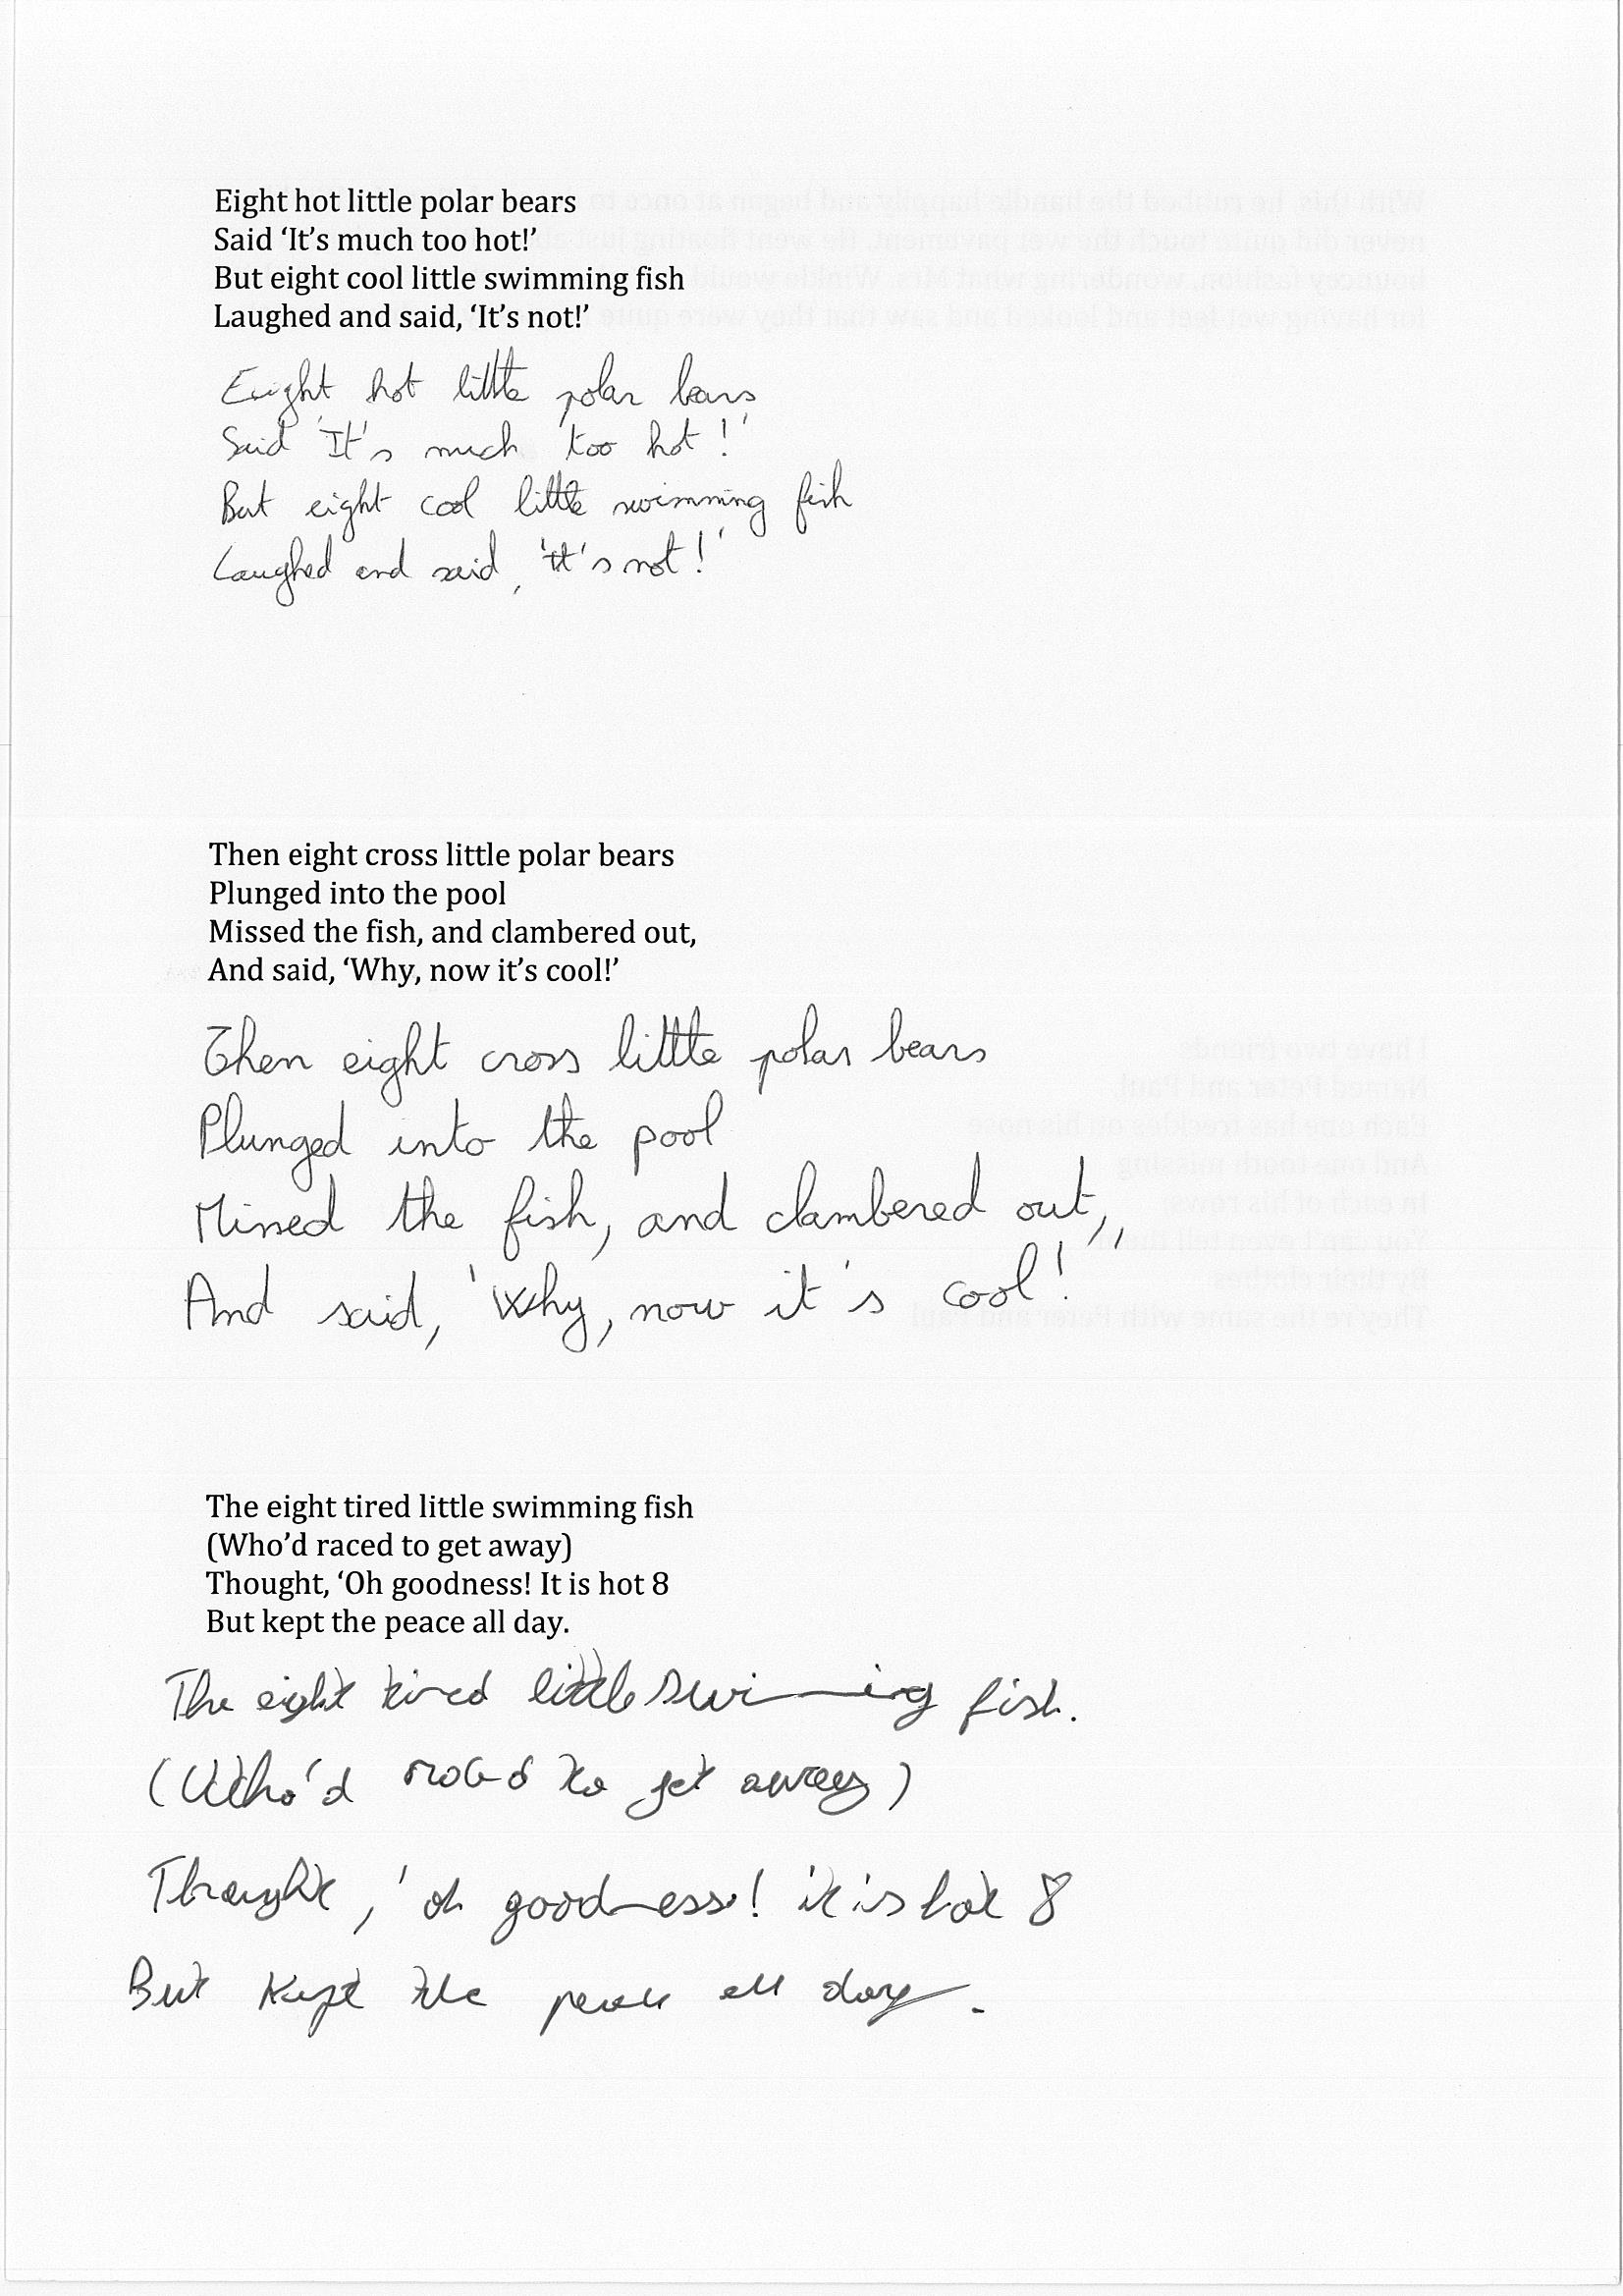 Eight hot little polar bears
Said ‘It’s much too hot!’
But eight cool little swimming fish
Laughed and said, ‘It’s not!’
Eight hot little polar bears
Said 'It's much too hot!'
But eight cool little swimming fish
Laughed and said, 'It's not!'
Then eight cross little polar bears
Plunged into the pool
Missed the fish, and clambered out,
And said, ‘Why, now it’s cool!’
Then eight cross little polar bears
Plunged into the pool
Missed the fish, and clambered out,
And said, 'Why, now it's cool!''
The eight tired little swimming fish
(Who’d raced to get away)
Thought, ‘Oh goodness! It is hot 8
But kept the peace all day.
The eight tired little swimming fish.
(Who'd raced to get away)
Thought, 'oh goodness! it is hot 8
But kept the peace all day.